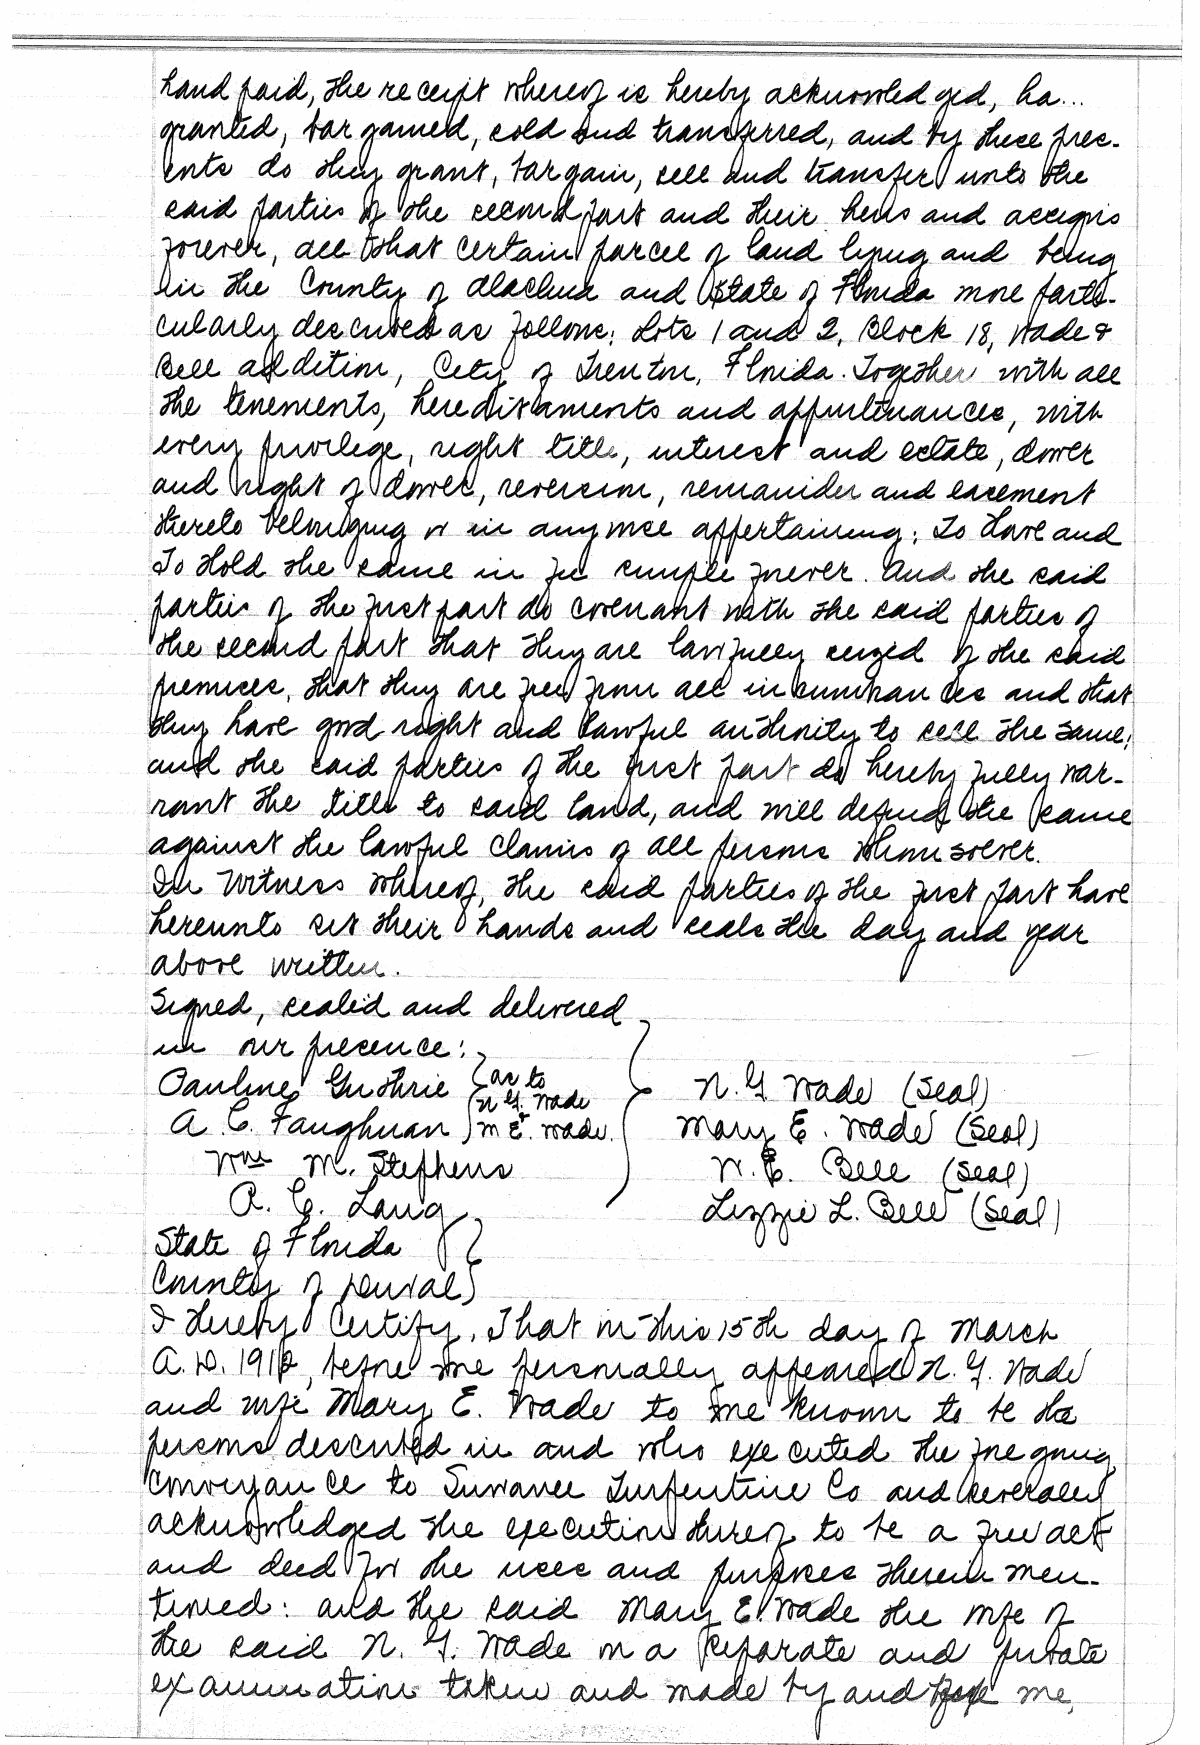 hand paid, the receipt whereof is hereby acknowledged, ha...
granted, bargained, sold and transferred, and by these pres-
ents do they grant, bargain, sell and transfer unto the
said parties of the second part and their heirs and assigns
forever, all that certain parcel of land lying and being
in the County of Alachua and State of Florida more parti-
cularly described as follows: Lots 1 and 2, Block 18, Wade &
Bell addition, City of Trenton, Florida. Together with all
the tenements, hereditaments and appurtenances, with
every privilege, right title, interest and estate, dower
and right of dower, reversion, remainder and easement
thereto belonging or in anywise appertaining: To Have and
To Hold the same in fee simple forever. And the said
parties of the first part do covenant with the said parties of
the second part that they are lawfully seized of the said
premises, that they are free from all incumbrances and that
they have good right and lawful authority to sell the same;
and the said parties of the first part do hereby fully war-
rant the title to said land, and will defend the same
against the lawful claims of all persons whomsoever.
In Witness Whereof, the said parties of the first part have
hereunto set their hands and seals the day and year
above written.
Signed, sealed and delivered
in our presence:
Pauline Guthrie as to N. G. Wade (Seal)
N. G. Wade
A. C. Faughnan & M E. Wade. Mary E. Wade (Seal)
Wm M. Stephens W. E. Bell (Seal)
A. C. Lang Lizzie L. Bell (Seal)
State of Florida
County of Duval
I Hereby Certify, That on this 15th day of March
A. D. 1912, before me personally appeared N. G. Wade
and wife Mary E. Wade to me known to be the
persons described in and who executed the foregoing
conveyance to Suwanee Turpentine Co and severally
acknowledged the execution thereof to be a free act
and deed for the uses and purposes therein men-
tioned: and the said Mary E. Wade the wife of
the said N. G. Wade on a separate and private
examination taken and made by and before me,